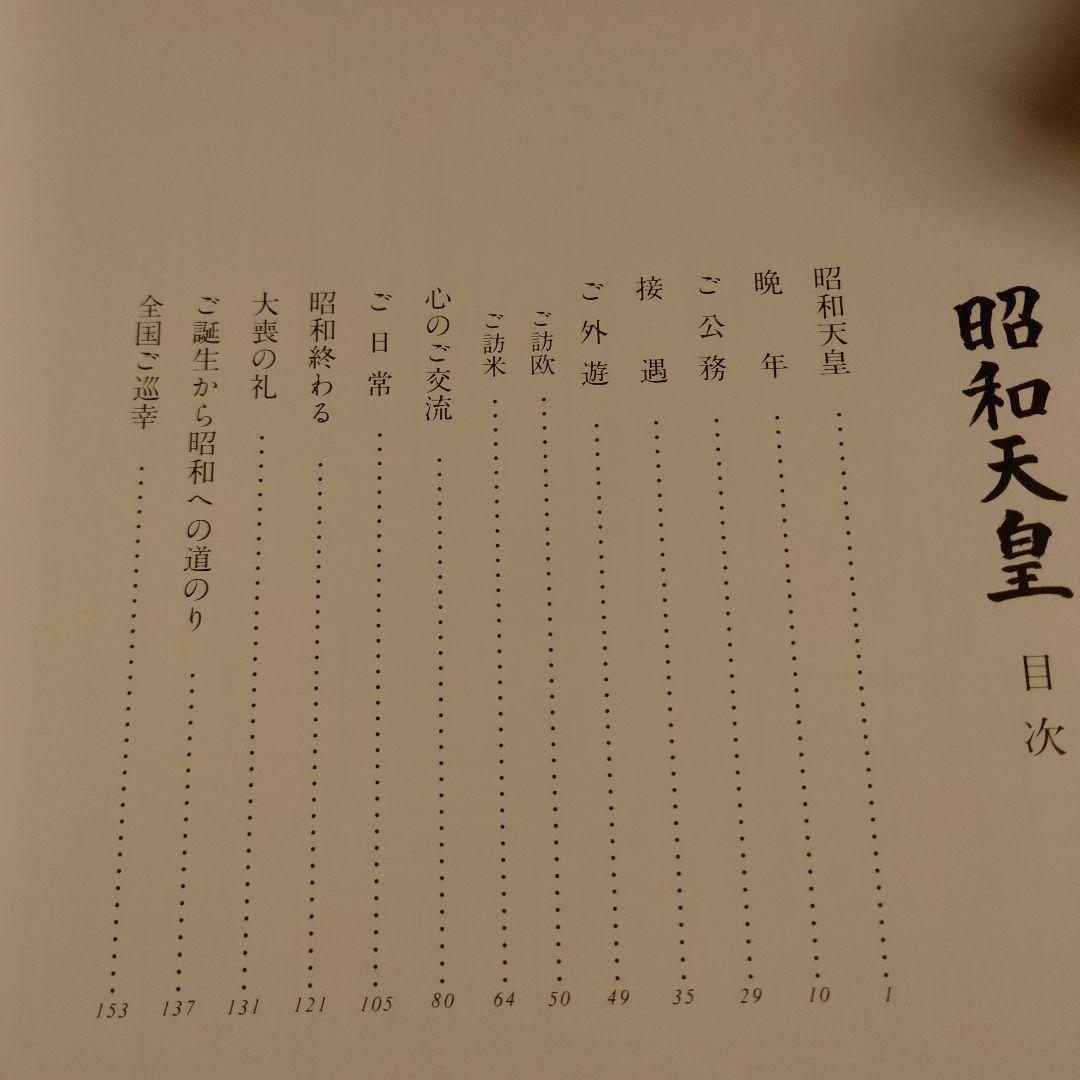 昭和天皇 目次
昭和天皇……1
晩年……10
ご公務……29
接遇……35
ご外遊……49
ご訪欧……50
ご訪米……64
心のご交流……80
ご日常……105
昭和終わる……121
大喪の礼……131
ご誕生から昭和への道のり……137
全国ご巡幸……153